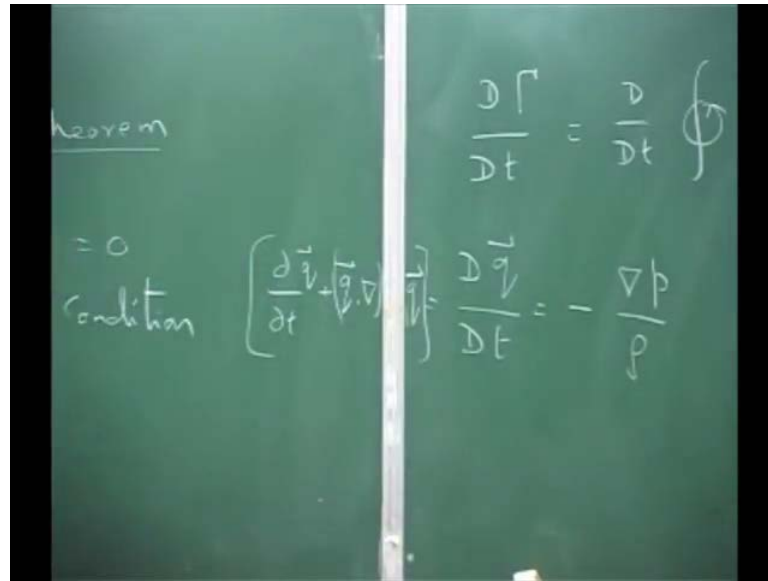 heorem
DΓ/Dt = D/Dt ∮
= 0
Condition [∂q⃗/∂t + (q⃗.∇) q⃗] = Dq⃗/Dt = - ∇p/ρ